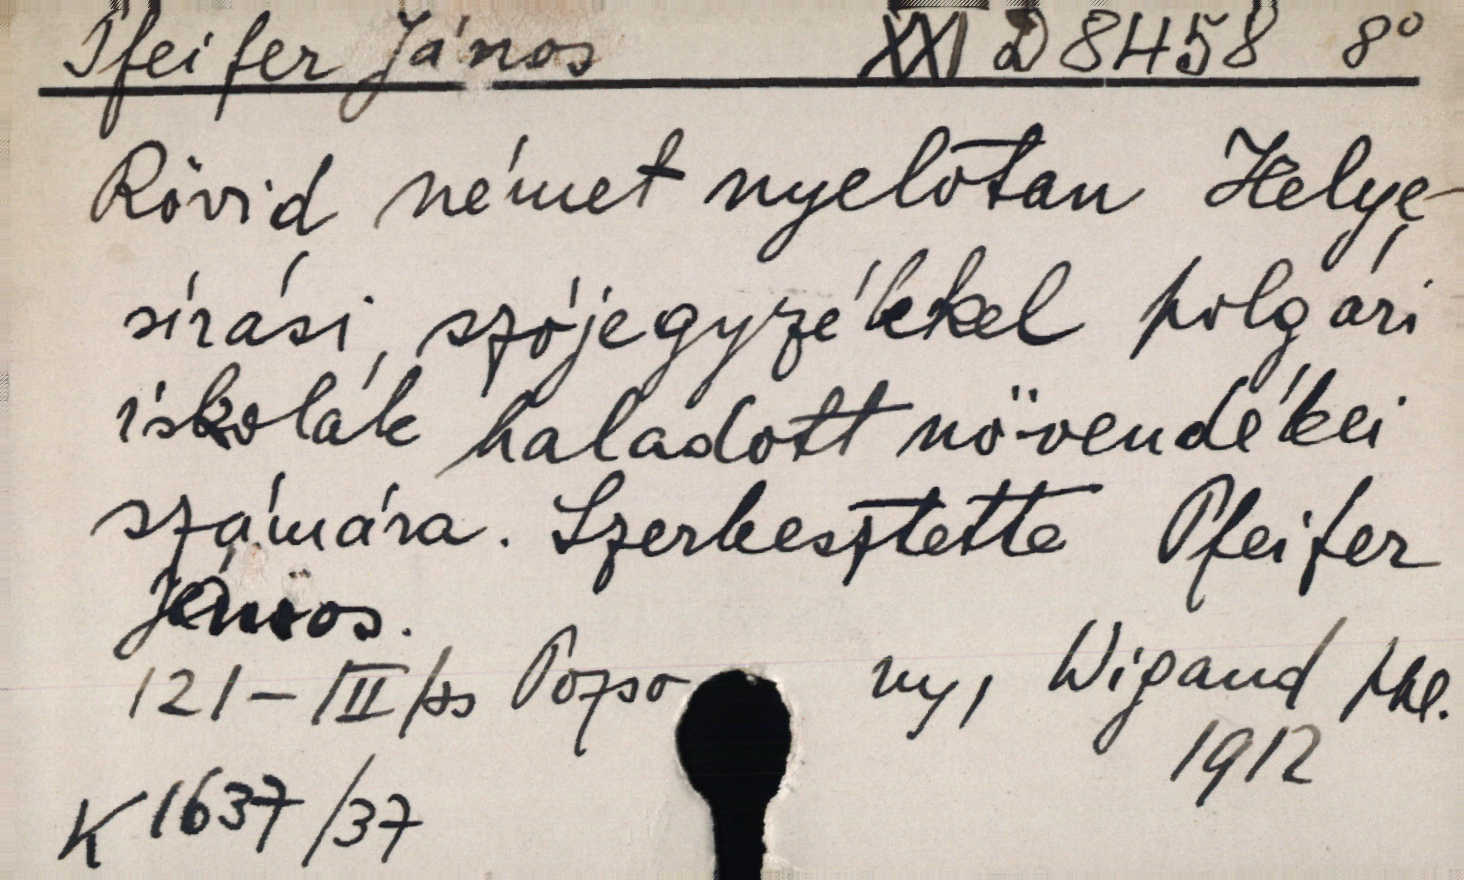 Pfeifer János XXI D 8458 8°
Rövid német nyelvtan Helye-
sírási, szójegyzékkel polgári
iskolák haladott növendékei
számára. Szerkesztette Pfeifer
János.
121-III/ss Pozso ny, Wigand
1912
K 1637/37